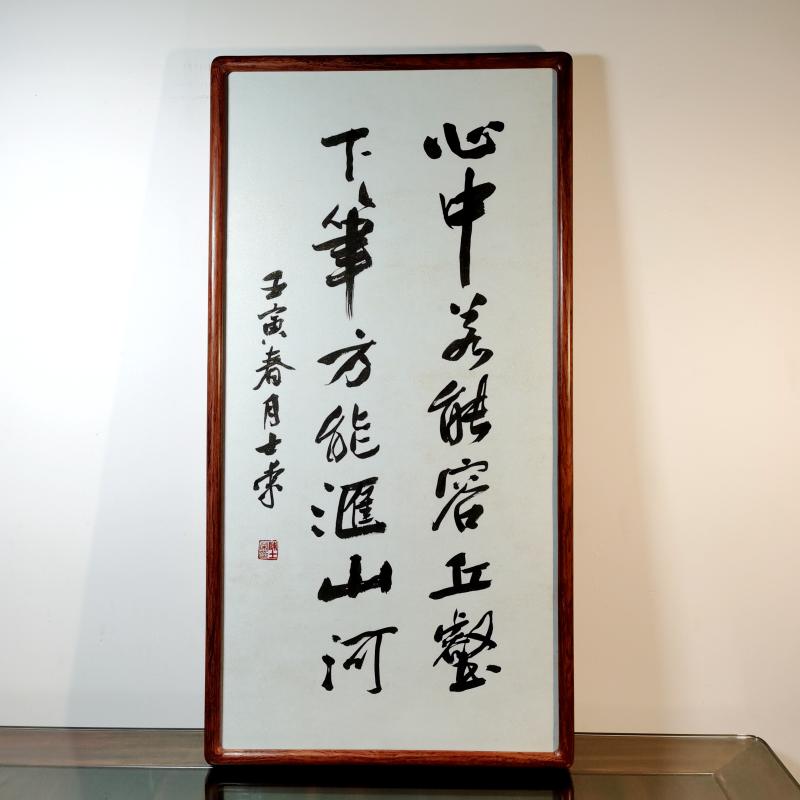 心中若能容丘壑
下筆方能滙山河
壬寅春月士榮